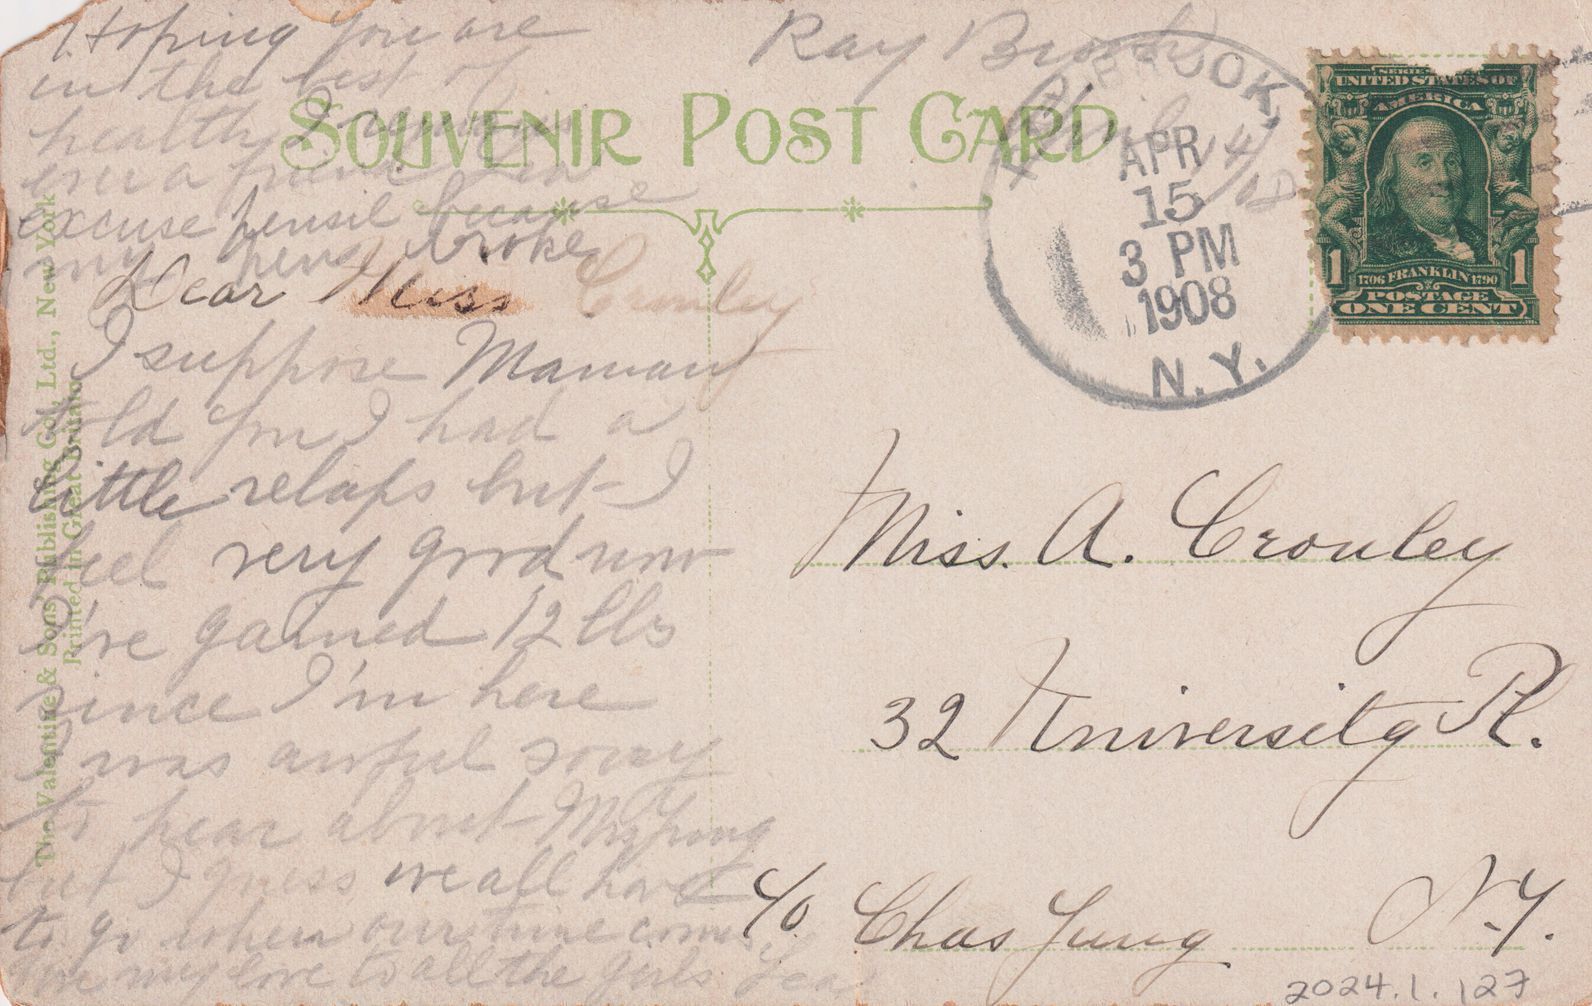 Ray Brook
April 14/08
SOUVENIR POST CARD
RAYBROOK,
APR
15
3 PM
1908
N.Y.
SERIES 1902
UNITED STATES OF
AMERICA
1706 FRANKLIN 1790
1 1
POSTAGE
ONE CENT
Dear Miss Cronley
I suppose Maman
told you I had a
little relaps but I
feel very good now
I've gained 12 lbs
since I'm here
I was awful sorry
to hear about
but I guess we all have
to go when our time comes,
Give my love to all the girls
Hoping you are
in the best of
health I remain
ever a friend
excuse pensil because
my pens broke
Miss. A. Cronley
32 University Pl.
c/o Chas Jung N.Y.
The Valentine & Sons' Publishing Co., Ltd., New York
Printed in Great Britain.
2024.1.127